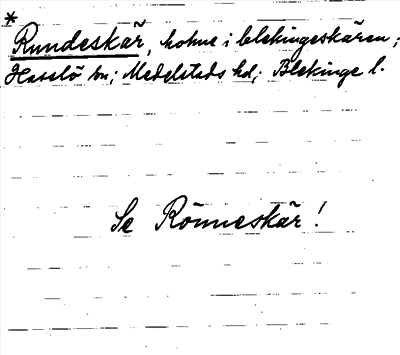 * Rundeskär, holme i blekingeskären;
Hasslö sn; Medelstads hd; Blekinge l.
Se Rönneskär!